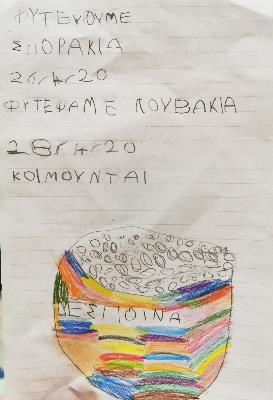 ΦΥΤΕΥΟΥΜΕ
ΣΠΟΡΑΚΙΑ
26/4/20
ΦΥΤΕΨΑΜΕ ΚΟΥΒΑΚΙΑ
28/4/20
ΚΟΙΜΟΥΝΤΑΙ
ΔΕΣΠΟΙΝΑ